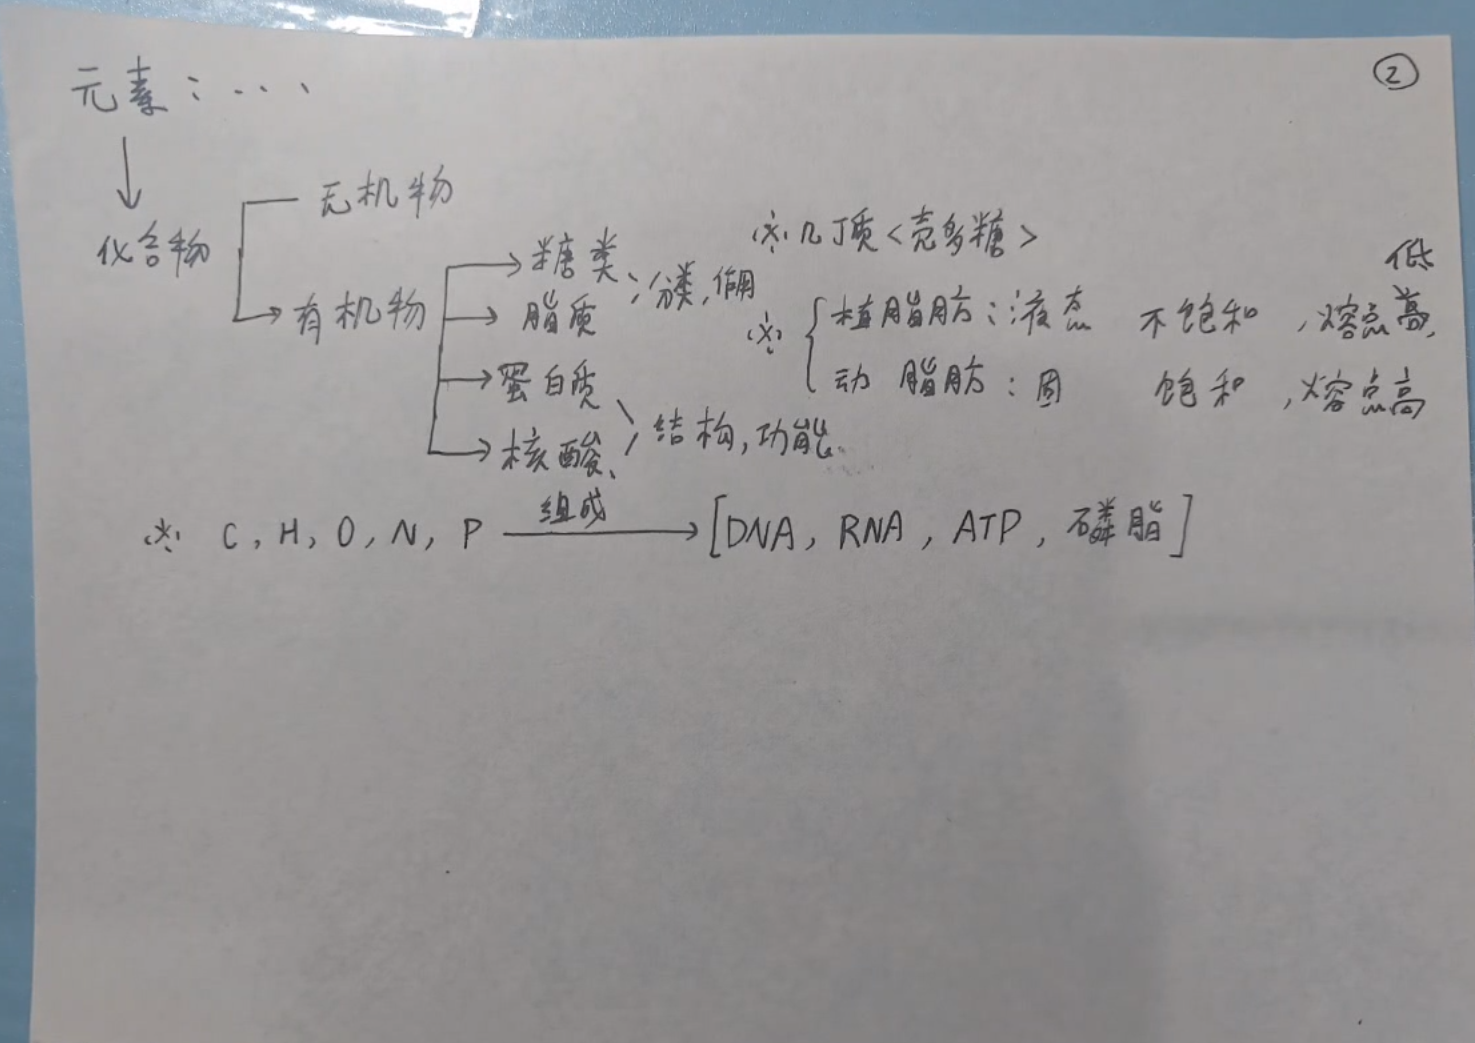 ②
元素：...
无机物
化合物
有机物
糖类
脂质
分类,作用
蛋白质
核酸、
结构,功能.
※几丁质<壳多糖>
※
植脂肪：液态 不饱和 ,熔点低
动 脂肪：固 饱和 ,熔点高
※ C, H, O, N, P 组成 [DNA, RNA, ATP, 磷脂]